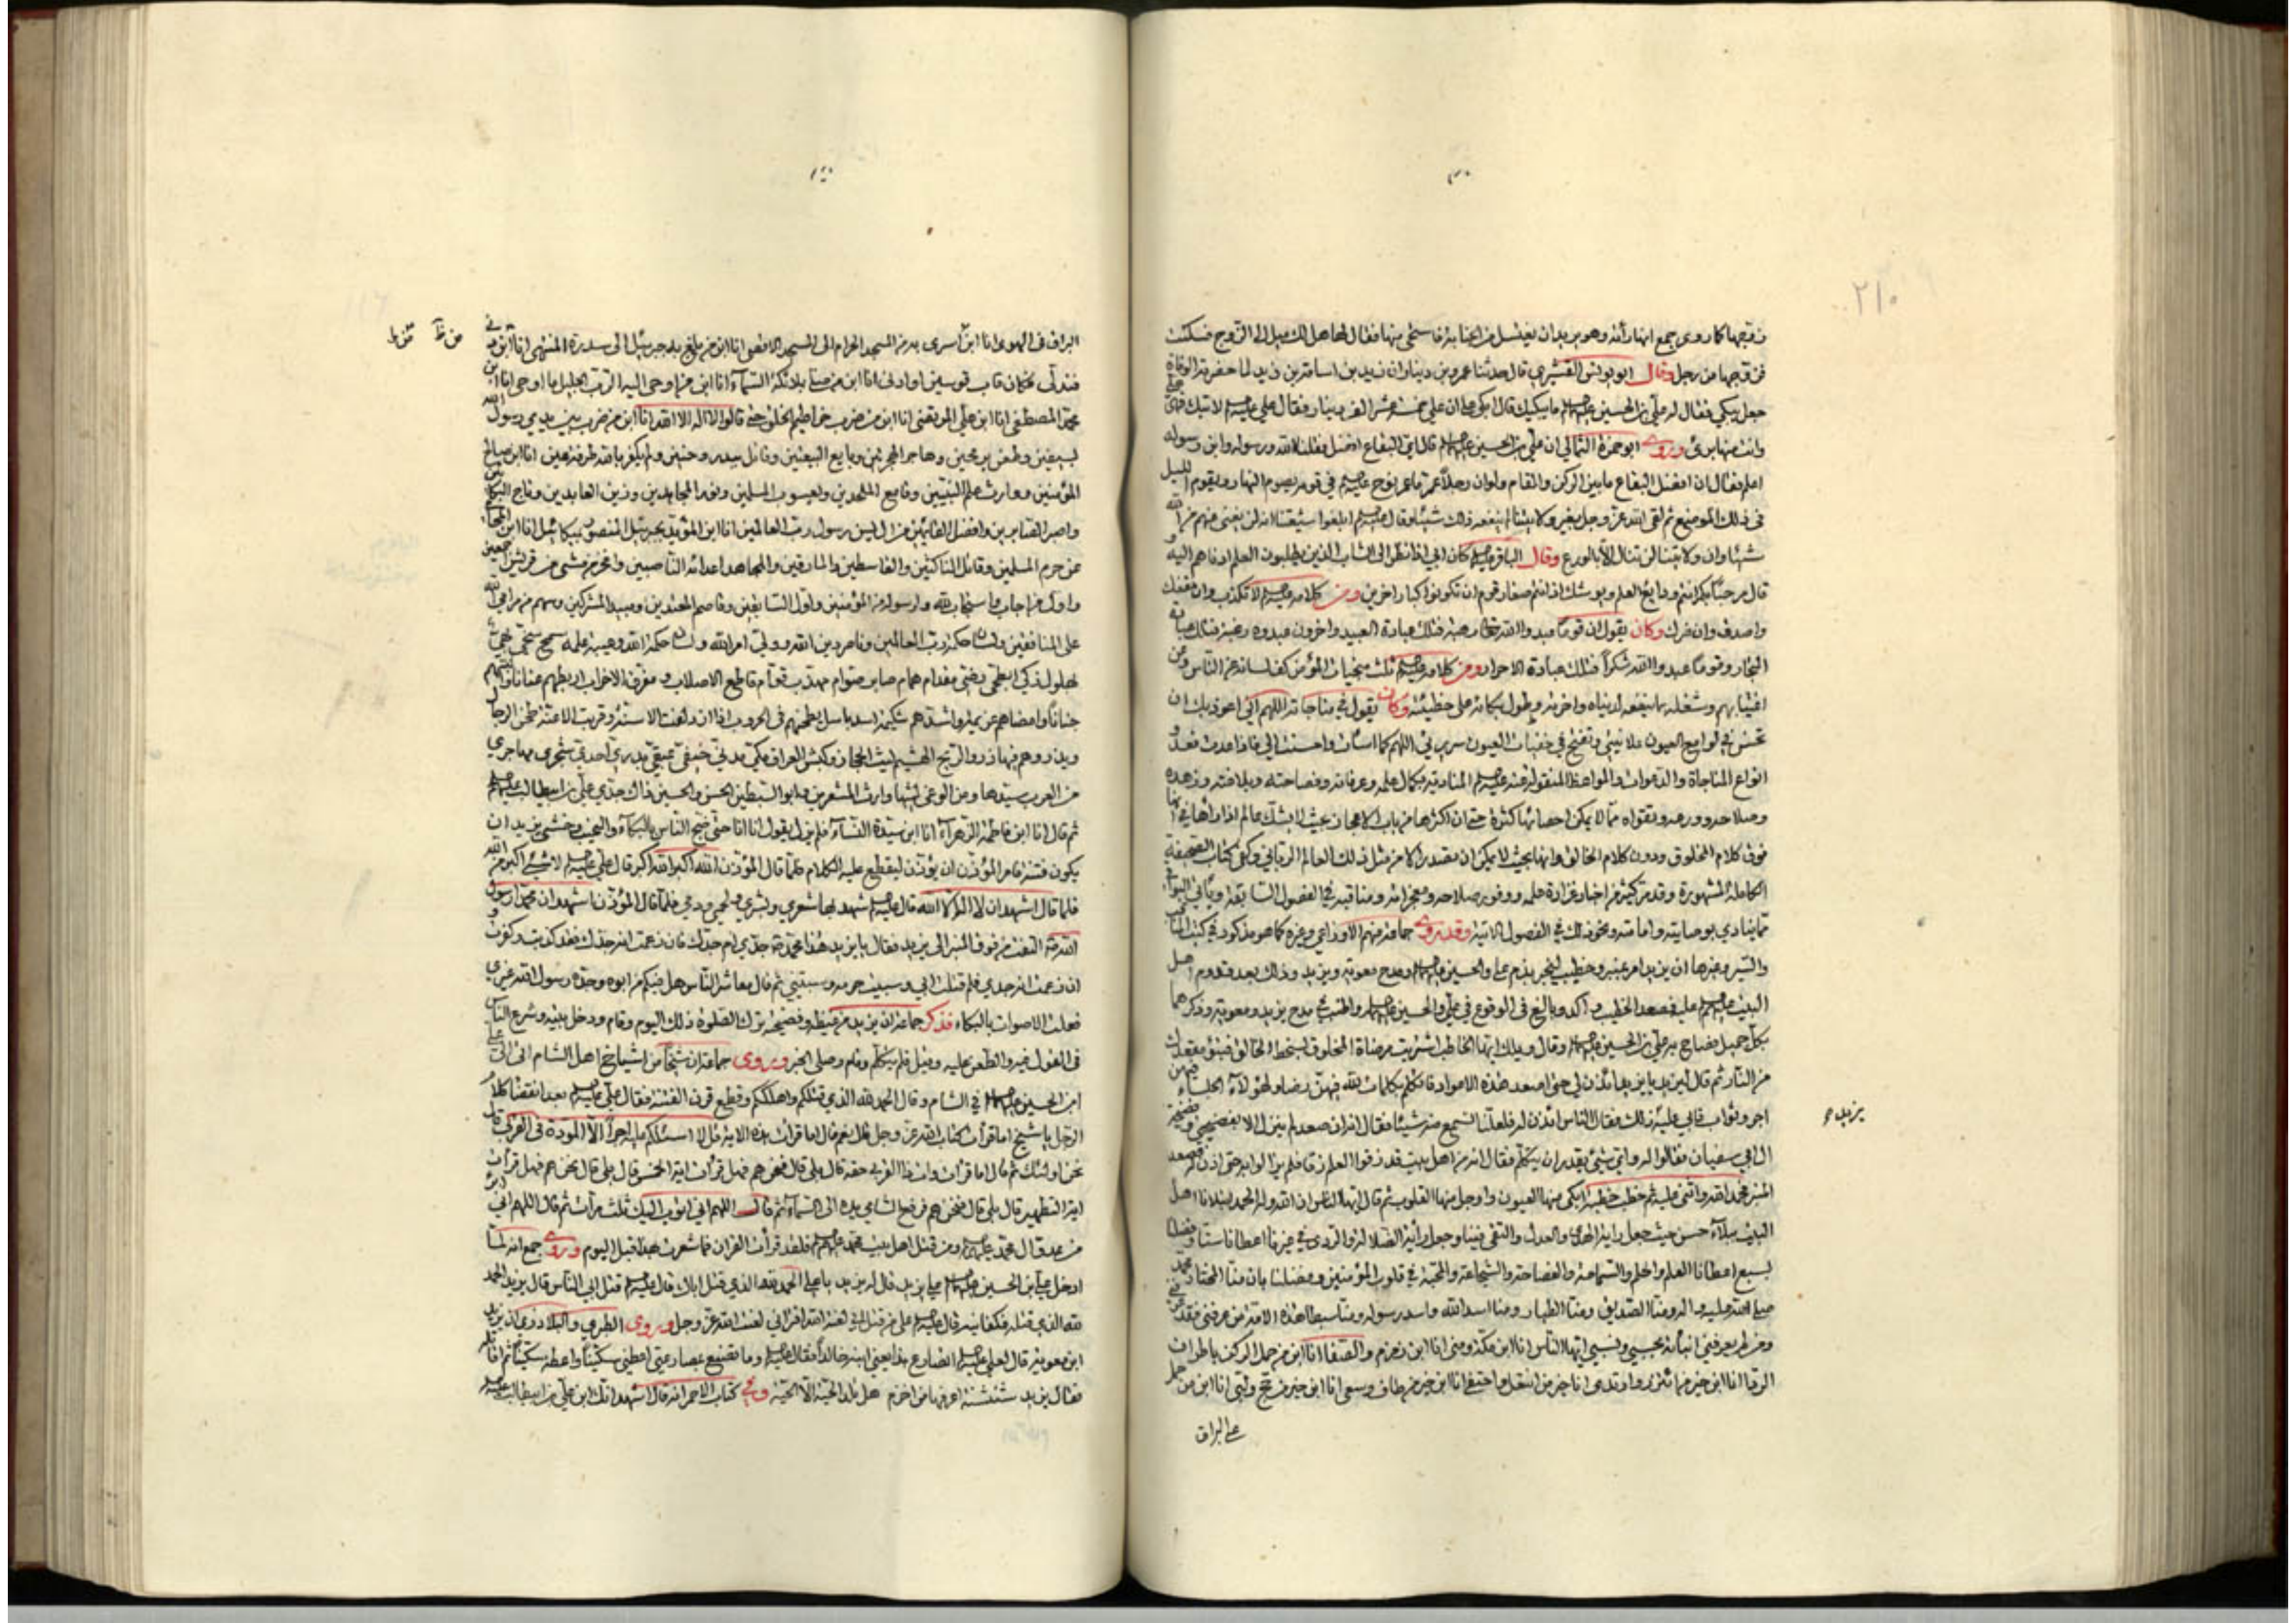 ٢١٠
فزوجها كما روى جمع انها رأته وهو يريد ان يغتسل من الجنابة فاستحى منها فقال لها هل لك ميل الى التزوج فسكتت
فزوجها من رجل وقال ابو يونس القشيري قال حدثنا عمرو بن دينار ان زيد بن اسامة بن زيد لما حضرته الوفاة
جعل يبكي فقال له علي بن الحسين عليهما السلم ما يبكيك قال ابكي ان علي خمسة عشر الف دينار فقال علي عليه السلم لا تبك فهي علي
وانت منها برئ وروى ابو حمزة الثمالي ان علي بن الحسين عليهما السلم قال اي البقاع افضل فقلنا الله ورسوله وابن رسوله
اعلم فقال ان افضل البقاع ما بين الركن والمقام ولو ان رجلا عمر ما عمر نوح عليه السلم في قومه يصوم النهار ويقوم الليل
في ذلك الموضع ثم لقي الله عز وجل بغير ولايتنا لم ينفعه ذلك شيئا وقال عليه السلم ابلغوا شيعتنا انه لن يغني عنهم من الله
شيئا وان ولايتنا لن تنال الا بالورع وقال الباقر عليه السلم كان ابي اذا نظر الى الشاب الذين يطلبون العلم ادناهم اليه و
قال مرحبا بكم انتم ودايع العلم ويوشك اذ انتم صغار قوم ان تكونوا كبار اخرين ومن كلامه عليه السلم لا تكذب وان نفعك
واصدق وان ضرك وكان يقول ان قوما عبدوا الله تعالى رهبة فتلك عبادة العبيد واخرون عبدوه رغبة فتلك عبادة
التجار وقوما عبدوا الله شكرا فتلك عبادة الاحرار ومن كلامه عليه السلم ثلث منجيات المؤمن كف لسانه عن الناس وعن
اغتيابهم وشغله بما ينفعه لدنياه واخرته وطول بكائه على خطيئته وكان يقول في مناجاته اللهم اني اعوذ بك ان
تحسن في لوامع العيون علانيتي وتقبح في خفيات العيون سريرتي اللهم كما اسأت واحسنت الي فاذا عدت فعد و
انواع المناجاة والدعوات والمواعظ المنقولة عنه عليه السلم المنادية بكمال علمه وعرفانه وفصاحته وبلاغته وزهده
وصلاحه وورعه وتقواه مما لا يمكن احصائها كثرة حتى ان اكثرها من باب الاعجاز بحيث لا يشك عالم اذا راها في انها
فوق كلام المخلوق ودون كلام الخالق وانها بحيث لا يمكن ان يصدر الا من مثل ذلك العالم الرباني وكفى كتاب الصحيفة
الكاملة المشهورة وقد مر كثير من اخبار غزارة علمه ووفور صلاحه ومعجزاته ومناقبه في الفصول السابقة ويأتي البواقي
مما ينادي بوصايته وامامته ونحو ذلك في الفصول الاتية وقد روى جماعة منهم الاوزاعي وغيره كما هو مذكور في كتب المناقب
والسير وغيرها ان يزيد امر بمنبر وخطيب ليخبر بذم علي والحسين عليهما السلم ومدح معوية ويزيد وذلك بعد قدوم اهل
البيت عليهم السلم عليه فصعد الخطيب واكد وبالغ في الوقوع في علي والحسين عليهما السلم واطنب في مدح يزيد ومعوية وذكرهما
بكل جميل فصاح به علي بن الحسين عليهما السلم وقال ويلك ايها الخاطب اشتريت مرضاة المخلوق بسخط الخالق فتبوء مقعدك
من النار ثم قال ليزيد يا يزيد ائذن لي حتى اصعد هذه الاعواد فاتكلم بكلمات لله فيهن رضا ولهؤلاء الجلساء فيهن
اجر وثواب فابى عليه ذلك فقال الناس ائذن له فلعلنا نسمع منه شيئا فقال انه ان صعد لم ينزل الا بفضيحتي وفضيحة
يزيد
ال ابي سفيان فقالوا له واي شيئ يقدر ان يتكلم فقال انه من اهل بيت قد زقوا العلم زقا فلم يزالوا به حتى اذن له فصعد
المنبر فحمد الله واثنى عليه ثم خطب خطبة ابكى منها العيون واوجل منها القلوب ثم قال ايها الناس ان الله وله الحمد ابتلانا اهل
البيت ببلاء حسن حيث جعل راية الهدى والعدل والتقى فينا وجعل راية الضلالة والردى في غيرنا اعطانا ستا وفضلنا
بسبع اعطانا العلم والحلم والسماحة والفصاحة والشجاعة والمحبة في قلوب المؤمنين وفضلنا بان منا المختار محمد
صلى الله عليه واله ومنا الصديق ومنا الطيار ومنا اسد الله واسد رسوله ومنا سبطا هذه الامة من عرفني فقد عرفني
ومن لم يعرفني انبأته بحسبي ونسبي ايها الناس انا ابن مكة ومنى انا ابن زمزم والصفا انا ابن من حمل الركن باطراف
الردا انا ابن خير من ائتزر وارتدى انا خير من انتعل واحتفى انا ابن خير من طاف وسعى انا ابن خير من حج ولبى انا ابن من حمل
على البراق
البراق في الهوى انا ابن اسرى به من المسجد الحرام الى المسجد الاقصى انا ابن من بلغ به جبرئيل الى سدرة المنتهى انا ابن من دنى
فتدلى فكان قاب قوسين او ادنى انا ابن من صلى بملائكة السماء انا ابن من اوحى اليه الرب الجليل ما اوحى انا ابن
محمد المصطفى انا ابن علي المرتضى انا ابن من ضرب خراطيم الخلق حتى قالوا لا اله الا الله انا ابن من ضرب بين يدي رسول الله
بسيفين وطعن برمحين وهاجر الهجرتين وبايع البيعتين وقاتل ببدر وحنين ولم يكفر بالله طرفة عين انا ابن صالح
المؤمنين ووارث علم النبيين وقامع الملحدين ويعسوب المسلمين ونور المجاهدين وزين العابدين وتاج البكائين
واصبر الصابرين وافضل القائمين من ال يس رسول رب العالمين انا ابن المؤيد بجبرئيل المنصور بميكائيل انا ابن المحامي
عن حرم المسلمين وقاتل الناكثين والقاسطين والمارقين والمجاهد اعدائه الناصبين وافخر من مشى من قريش اجمعين
واول من اجاب واستجاب لله ولرسوله من المؤمنين واول السابقين وقاصم المعتدين ومبيد المشركين وسهم من مرامي الله
على المنافقين ولسان حكمة رب العالمين وناصر دين الله وولي امر الله ولسان حكمة الله وعيبة علمه سمح سخي بهي
بهلول زكي ابطحي رضي مقدام همام صابر صوام مهذب قوام قاطع الاصلاب ومفرق الاحزاب اربطهم عنانا واثبتهم
جنانا وامضاهم عزيمة واشدهم شكيمة اسد باسل يطحنهم في الحروب اذا ازدلفت الاسنة وقربت الاعنة طحن الرحا
ويذروهم فيها ذرو الريح الهشيم ليث الحجاز وكبش العراق مكي مدني خيفي عقبي بدري احدي شجري مهاجري
من العرب سيدها ومن الوغى ليثها وارث المشعرين وابو السبطين الحسن والحسين ذاك جدي علي بن ابيطالب عليهم السلم
ثم قال انا ابن فاطمة الزهراء انا ابن سيدة النساء فلم يزل يقول انا انا حتى ضج الناس بالبكاء والنحيب وخشي يزيد ان
يكون فتنة فامر المؤذن ان يؤذن ليقطع عليه الكلام فلما قال المؤذن الله اكبر الله اكبر قال علي عليه السلم لا شئ اكبر من الله
فلما قال اشهد ان لا اله الا الله قال عليه السلم شهد بها شعري وبشري ولحمي ودمي فلما قال المؤذن اشهد ان محمدا رسول
الله التفت من فوق المنبر الى يزيد فقال يا يزيد هذا محمد جدي ام جدك فان زعمت انه جدك فقد كذبت وكفرت و
ان زعمت انه جدي فلم قتلت ابي وسبيت حرمه وسبيتني ثم قال معاشر الناس هل فيكم من ابوه وجده رسول الله غيري
فعلت الاصوات بالبكاء فذكر جماعة ان يزيد من غيظه وفضيحته ترك الصلوة ذلك اليوم وقام ودخل بيته وشرع الناس
في القول فيه والطعن عليه وقيل فلم يتكلم وقام وصلى الخبر وروى جماعة ان شيخا من اشياخ اهل الشام اتى الى علي
ابن الحسين عليهما السلم في الشام وقال الحمد لله الذي قتلكم واهلككم وقطع قرن الفتنة فقال علي عليه السلم بعد انقضا كلام
الرجل يا شيخ اما قرأت كتاب الله عز وجل قال نعم قال اما قرأت هذه الاية قل لا اسئلكم عليه اجرا الا المودة في القربى قال
نحن اولئك ثم قال اما قرأت وات ذا القربى حقه قال بلى قال فنحن هم فهل قرأت اية الخمس قال بلى قال نحن هم فهل قرأت
اية التطهير قال بلى قال فنحن هم فرفع الشامي يده الى السماء ثم قال اللهم اني اتوب اليك ثلث مرات ثم قال اللهم اني ابرء
من عدو ال محمد عليهم السلم ومن قتل اهل بيت محمد عليهم السلم فلقد قرأت القران فما شعرت بهذا قبل اليوم وروى جمع انه لما
ادخل علي بن الحسين عليهما السلم على يزيد قال له يزيد يا علي الحمد لله الذي قتل اباك قال عليه السلم قتل ابي الناس قال يزيد الحمد
لله الذي قتله فكفانيه قال عليه السلم على من قتل ابي لعنة الله افتراني لعنت الله عز وجل وروى الطبري والبلاذري ان يزيد
ابن معوية قال لعلي عليه السلم اتصارع هذا يعني ابنه خالدا فقال عليه السلم وما تصنع بمصارعتي اعطني سكينا واعطه سكينا ثم اقاتله
فقال يزيد شنشنة اعرفها من اخزم هل تلد الحية الا الحية وفي كتاب الاحمر انه قال اشهد انك ابن علي بن ابيطالب عليه السلم